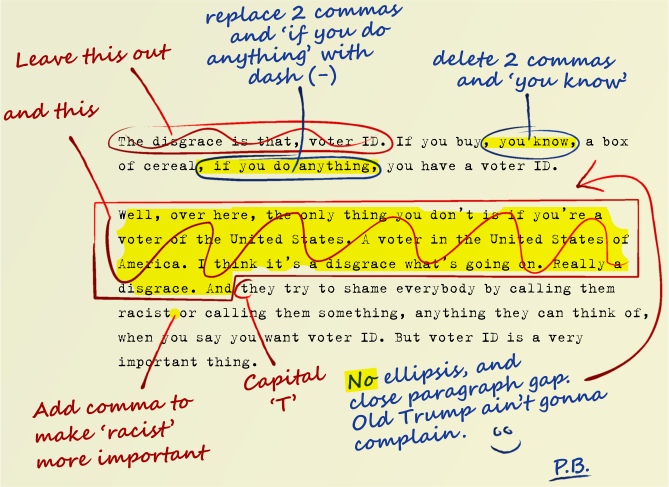 replace 2 commas
and ‘if you do
anything’ with
dash (–)
Leave this out
delete 2 commas
and ‘you know’
and this
The disgrace is that, voter ID. If you buy, you know, a box
of cereal, if you do anything, you have a voter ID.
Well, over here, the only thing you don’t is if you’re a
voter of the United States. A voter in the United States of
America. I think it’s a disgrace what’s going on. Really a
disgrace. And they try to shame everybody by calling them
racist or calling them something, anything they can think of,
when you say you want voter ID. But voter ID is a very
important thing.
Add comma to
make ‘racist’
more important
Capital
‘T’
No ellipsis, and
close paragraph gap.
Old Trump ain’t gonna
complain.
P.B.